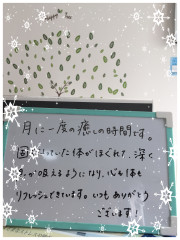 Happy Tree
月に一度の癒しの時間です。
固まっていた体がほぐれて、深く
息が吸えるようになり、心も体も
リフレッシュできています。いつもありがとう
ございます！